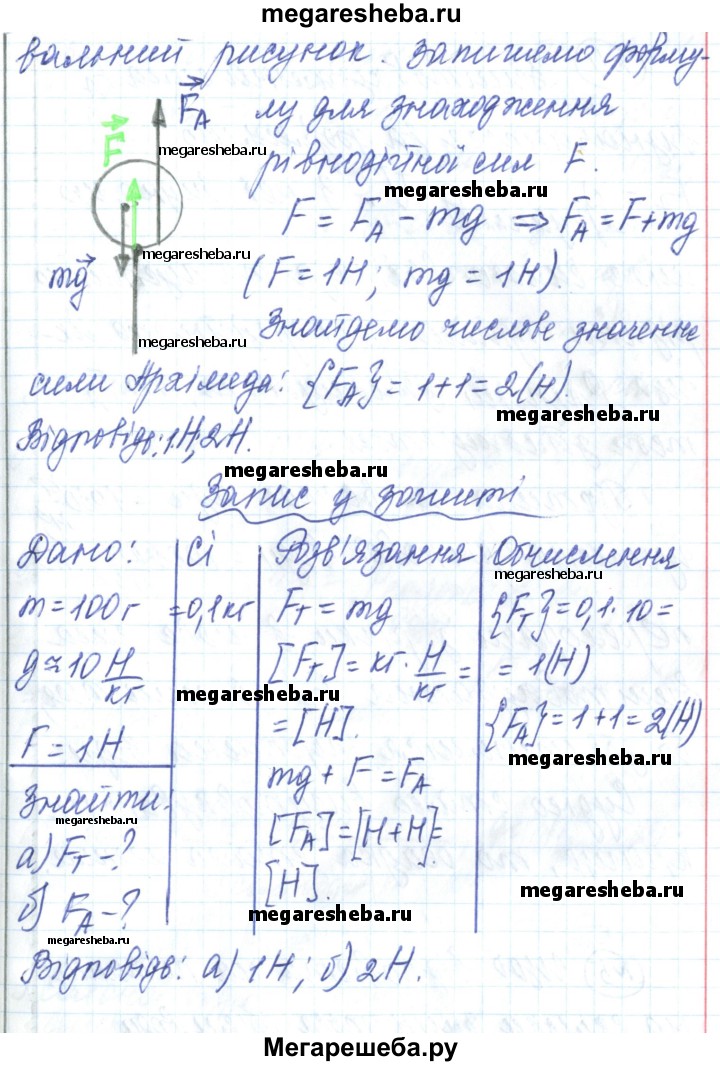 megaresheba.ru
вальний рисунок. Запишемо форму-
F_A лу для знаходження
F
megaresheba.ru
рівнодійної сил F.
megaresheba.ru
F = F_A - mg ⇒ F_A = F + mg
megaresheba.ru
mg (F = 1Н; mg = 1Н).
megaresheba.ru
Знайдемо числове значення
сили Архімеда: {F_A} = 1+1 = 2(Н).
megaresheba.ru
Відповідь: 1Н; 2Н.
megaresheba.ru
Запис у зошиті
Дано: Сі Розв'язання Обчислення
megaresheba.ru
m = 100г = 0,1кг F_т = mg {F_т} = 0,1·10 =
g ≈ 10 Н/кг [F_т] = кг·Н/кг = = 1(Н)
megaresheba.ru
F = 1Н = [Н]. {F_A} = 1+1 = 2(Н)
megaresheba.ru
Знайти: mg + F = F_A
megaresheba.ru
а) F_т - ? [F_A] = [Н+Н] =
megaresheba.ru
б) F_A - ? [Н].
megaresheba.ru
megaresheba.ru
megaresheba.ru
Відповідь: а) 1Н; б) 2Н.
Мегарешеба.ру